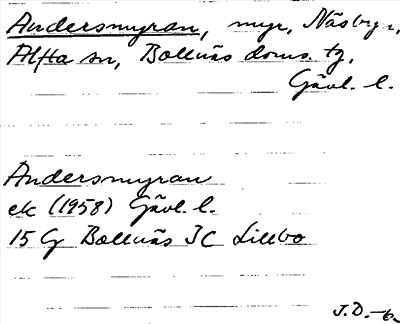 Andersmyran, myr, Näsbyn,
Alfta sn, Bollnäs doms. tg,
Gävl. l.
Andersmyran
ek (1958) Gävl. l.
15 G Bollnäs 3C Lillbo
J.D.-6